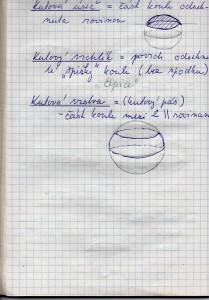 Kulová úseč = část koule odseknutá rovinou
Kulový vrchlík = povrch odseknuté "špičky" koule (bez spodku)
"čepice"
Kulová vrstva = (kulový pás)
- část koule mezi 2 || rovinami